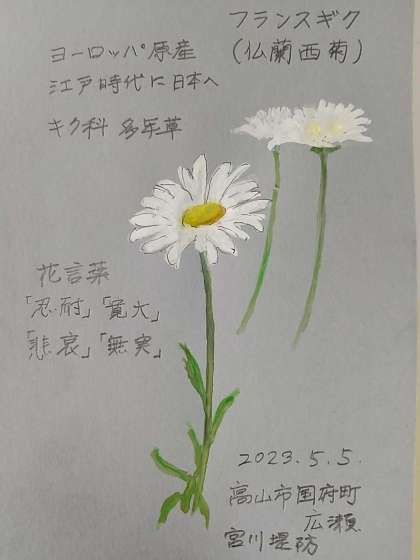 フランスギク
(仏蘭西菊)
ヨーロッパ原産
江戸時代に日本へ
キク科 多年草
花言葉
「忍耐」「寛大」
「悲哀」「無実」
2023.5.5.
高山市国府町
広瀬
宮川堤防